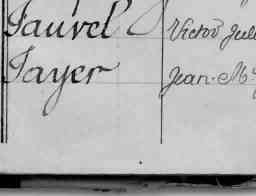 Fauvel Victor Jul
Fayer Jean-M